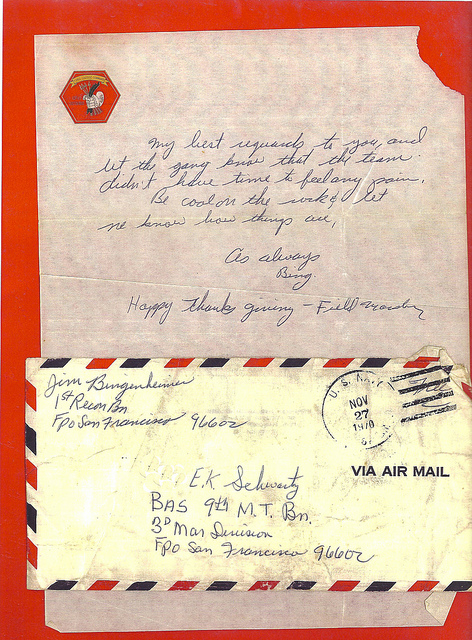 My best reguards to you, and
let the gang know that the team
didn't have time to feel any pain.
Be cool on the rocks & let
me know how things are,
As always
Bing.
Happy Thanks giving - Field
Jim Bingenheimer
1st Recon Bn
FPO San Francisco 96602
U.S. NAVY
NOV
27
1970
VIA AIR MAIL
E.K Schwartz
BAS 9th M.T. Bn.
3D Mar Division
FPO San Francisco 96602